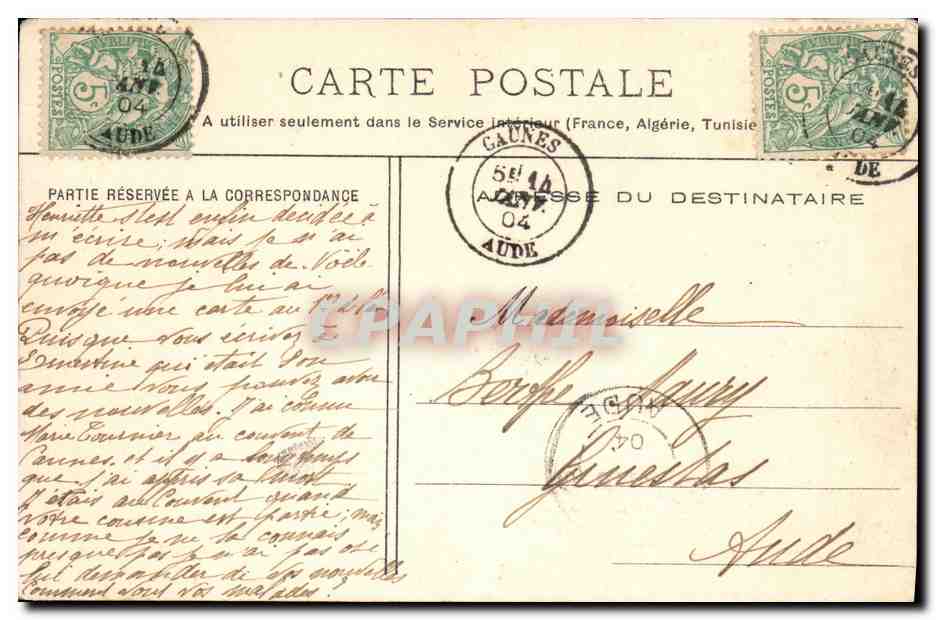 CARTE POSTALE
A utiliser seulement dans le Service intérieur (France, Algérie, Tunisie
POSTES 5c
14
JANV.
04
AUDE
POSTES 5c
AUNES
14
JANV
04
DE
CAUNES
5E 14
JANV.
04
AUDE
PARTIE RÉSERVÉE A LA CORRESPONDANCE
Henriette s'est enfin décidée à
m'écrire; mais je n'ai
pas de nouvelles de
quoique je lui ai
envoyé une carte au 1er de l'a
Puisque vous écrivez à
Ernestine qui était son
amie vous pouvez avoir
des nouvelles. J'ai connu
Marie Tournier au couvent de
Caunes. et il y a longtemps
que j'ai appris sa mort
J'étais au Couvent quand
votre cousine est partie; mais
comme je ne la connais
presque pas je n'ai pas osé
lui demander de ses nouvelles
Comment vont vos malades?
ADRESSE DU DESTINATAIRE
Mademoiselle
Berthe Maury
Ginestas
Aude
AUDE
04
CPAPHIL